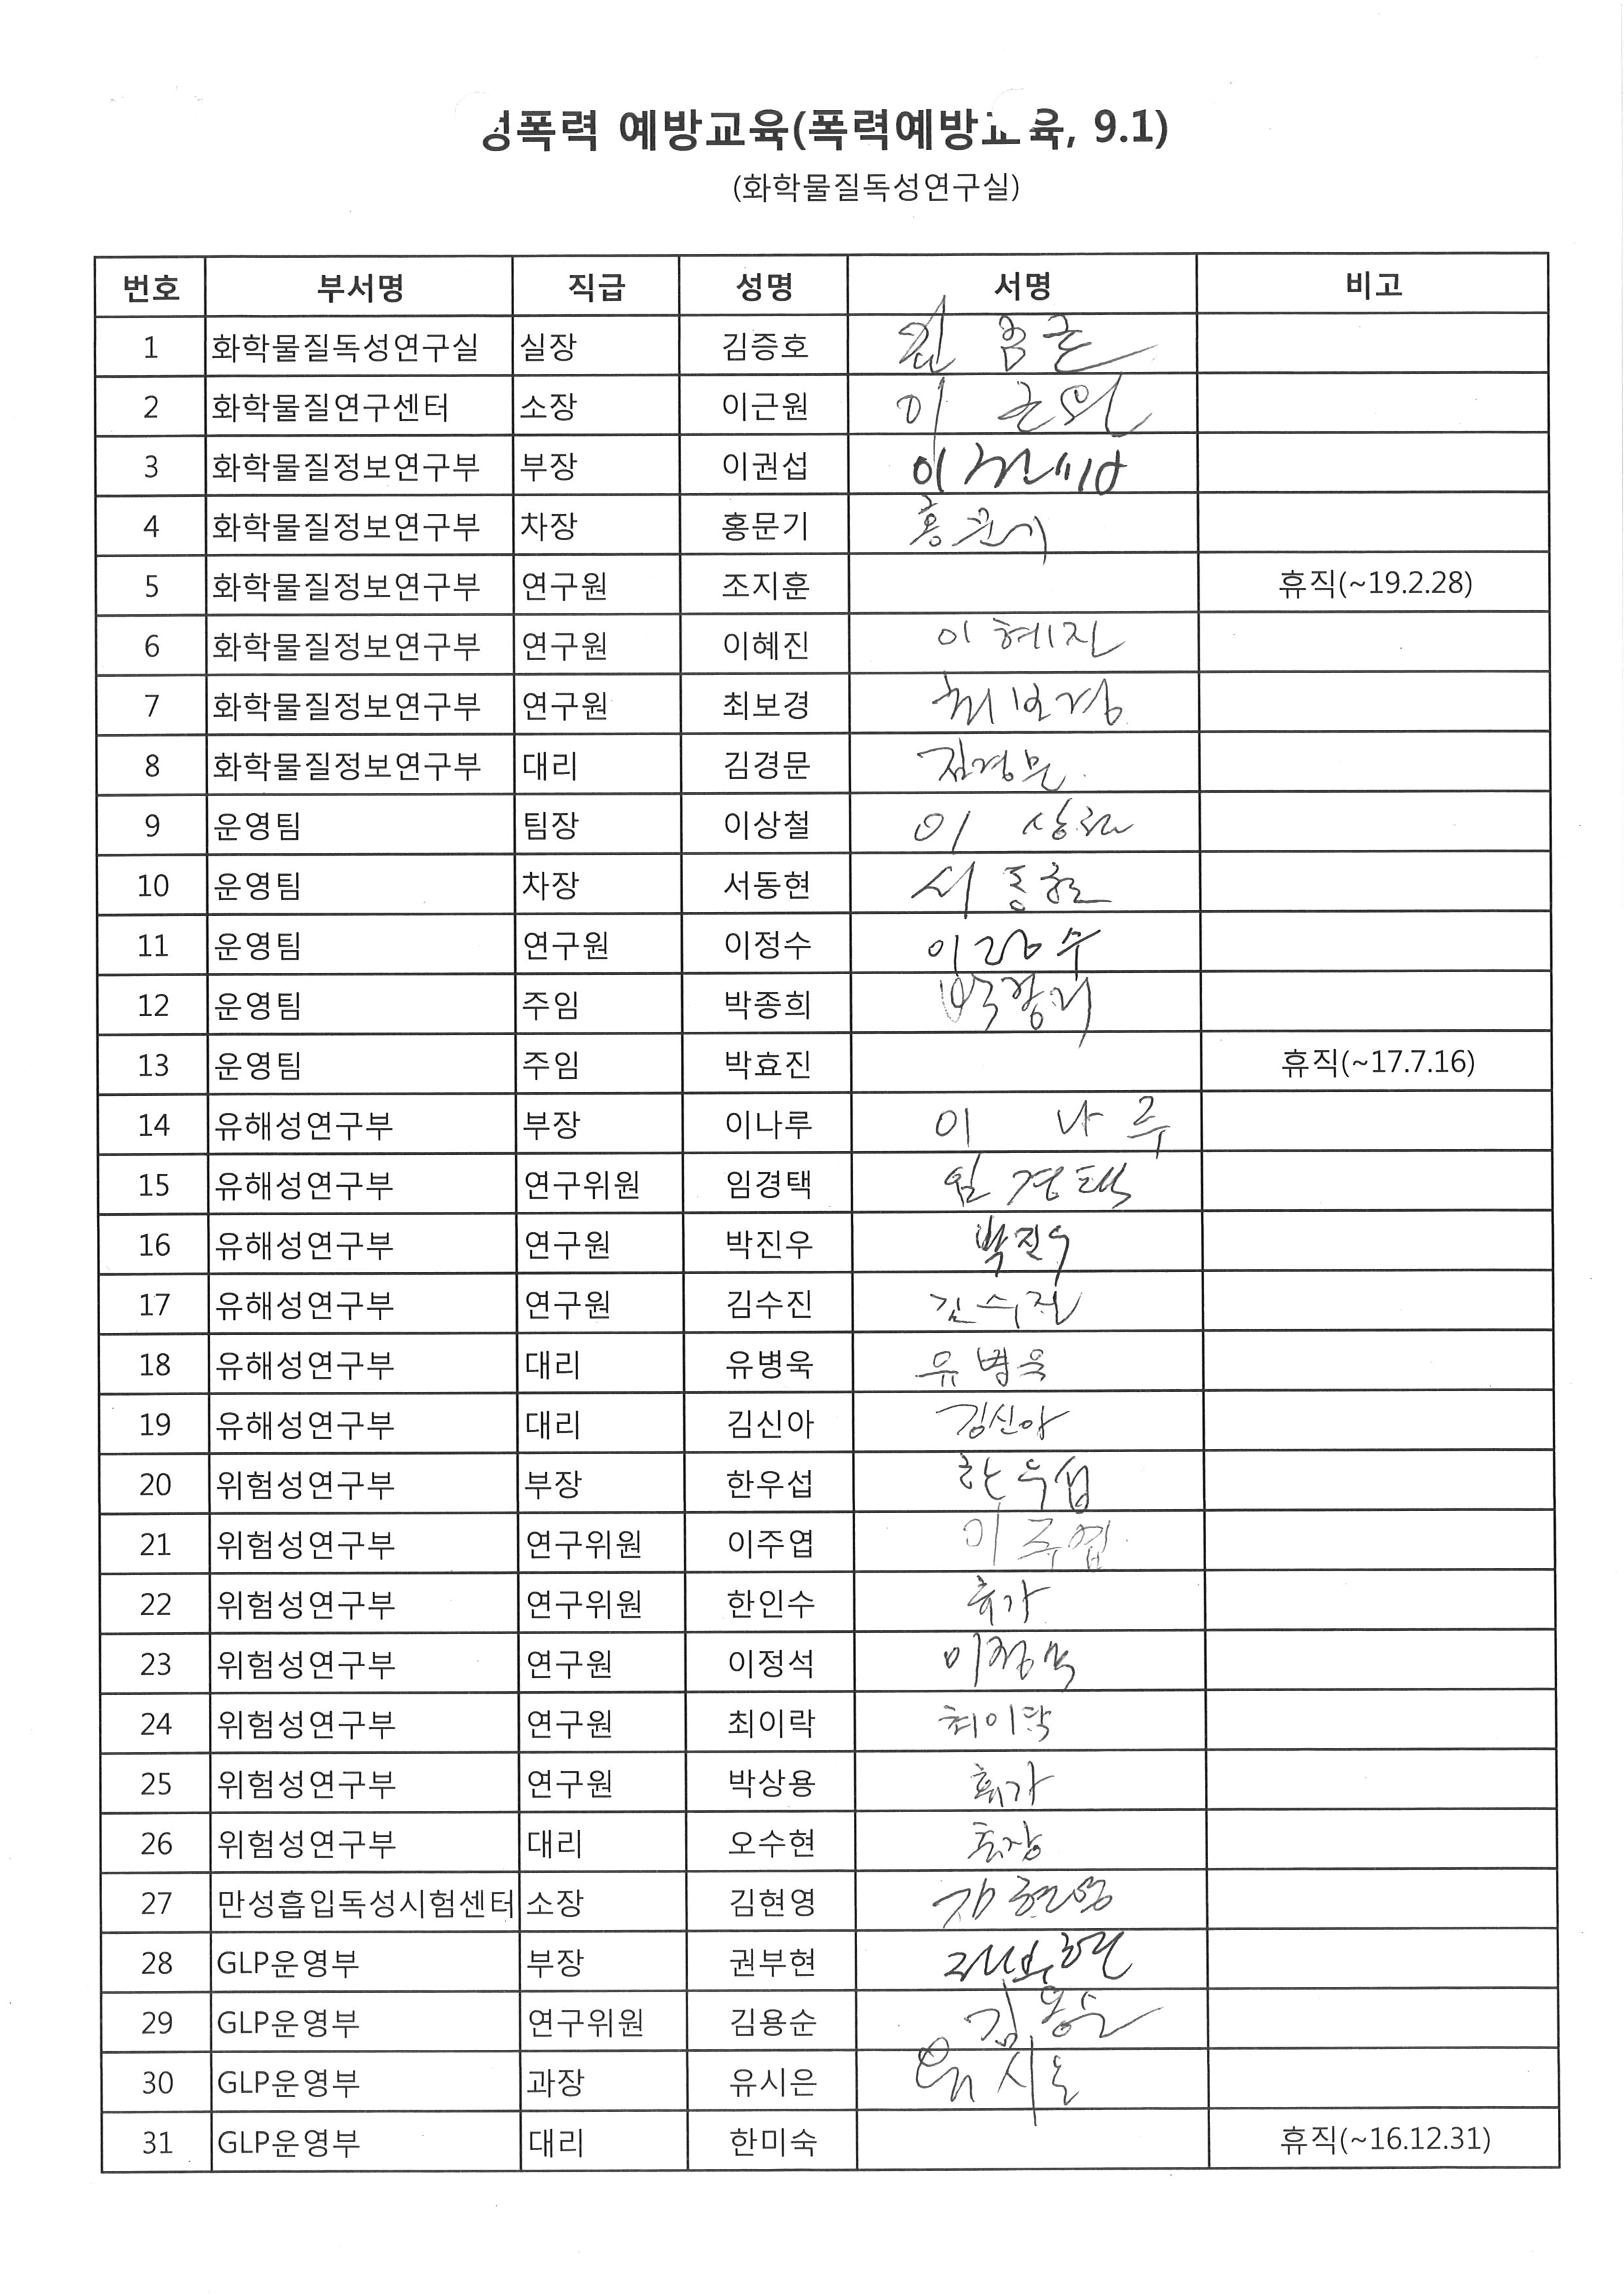 성폭력 예방교육(폭력예방교육, 9.1)
(화학물질독성연구실)
번호 부서명 직급 성명 서명 비고
1 화학물질독성연구실 실장 김증호
2 화학물질연구센터 소장 이근원 이근원
3 화학물질정보연구부 부장 이권섭 이권섭
4 화학물질정보연구부 차장 홍문기 홍문기
5 화학물질정보연구부 연구원 조지훈 휴직(~19.2.28)
6 화학물질정보연구부 연구원 이혜진 이혜진
7 화학물질정보연구부 연구원 최보경 최보경
8 화학물질정보연구부 대리 김경문 김경문
9 운영팀 팀장 이상철 이상철
10 운영팀 차장 서동현 서동현
11 운영팀 연구원 이정수 이정수
12 운영팀 주임 박종희 박종희
13 운영팀 주임 박효진 휴직(~17.7.16)
14 유해성연구부 부장 이나루 이 나루
15 유해성연구부 연구위원 임경택 임경택
16 유해성연구부 연구원 박진우 박진우
17 유해성연구부 연구원 김수진 김수진
18 유해성연구부 대리 유병욱 유병욱
19 유해성연구부 대리 김신아 김신아
20 위험성연구부 부장 한우섭 한우섭
21 위험성연구부 연구위원 이주엽 이주엽
22 위험성연구부 연구위원 한인수 휴가
23 위험성연구부 연구원 이정석 이정석
24 위험성연구부 연구원 최이락 최이락
25 위험성연구부 연구원 박상용 휴가
26 위험성연구부 대리 오수현 출장
27 만성흡입독성시험센터 소장 김현영 김현영
28 GLP운영부 부장 권부현 권부현
29 GLP운영부 연구위원 김용순 김용순
30 GLP운영부 과장 유시은 유시은
31 GLP운영부 대리 한미숙 휴직(~16.12.31)